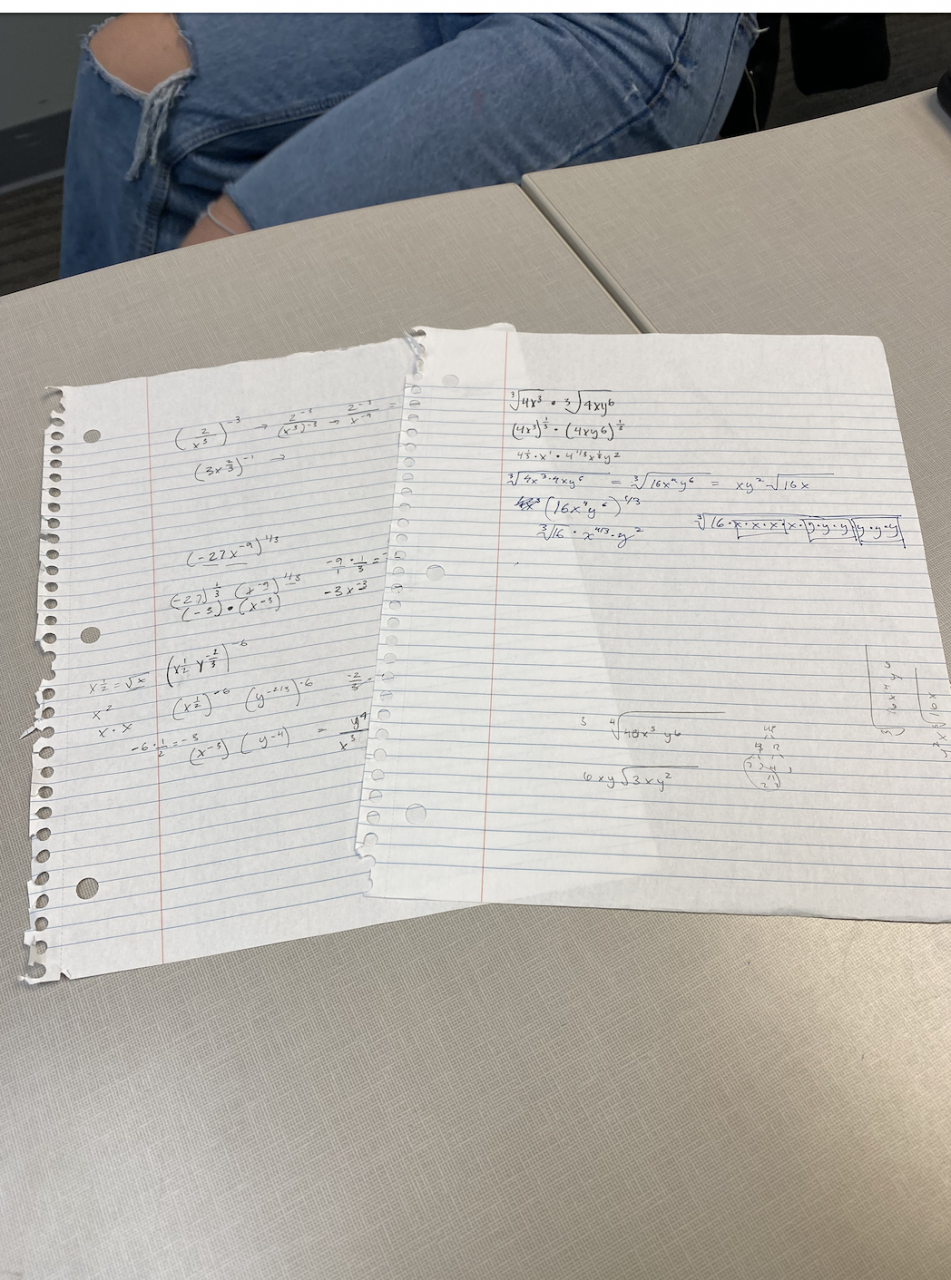 (2/x³)⁻³ → 2⁻³/(x³)⁻³ → 2⁻³/x⁻⁹ =
(3x^(2/3))⁻¹ →
(-27x⁻⁹)^(1/3)
(-27)^(1/3) (x⁻⁹)^(1/3)
-9/1 · 1/3 =
(-3) · (x⁻³)
-3x⁻³
(x^(1/2) y^(-2/3))⁻⁶
x^(1/2) = √x
(x^(1/2))⁻⁶ (y^(-2/3))⁻⁶
x²
x · x
-6 · 1/2 = -3
(x⁻³) (y⁻⁴) = y⁴/x³
³√4x³ · ³√4xy⁶
(4x³)^(1/3) · (4xy⁶)^(1/3)
4^(1/3) · x¹ · 4^(1/3) x^(1/3) y²
³√4x³·4xy⁶ = ³√16x⁴y⁶ = xy² √16x
(16x⁴y⁶)^(1/3)
³√16 · x^(4/3) · y²
³√16·x·x·x·x·y·y·y·y·y·y
3 ⁴√48x⁵y⁶
6xy√3xy²